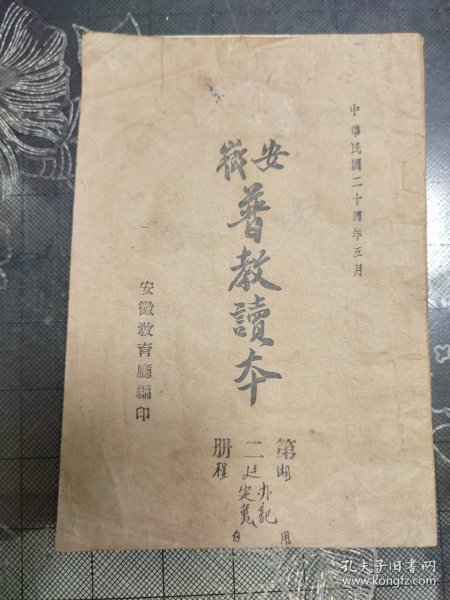 中華民國二十四年五月
安徽
普教讀本
安徽教育廳編印
第二册
自用
孔夫子旧书网
book.kongfz.com